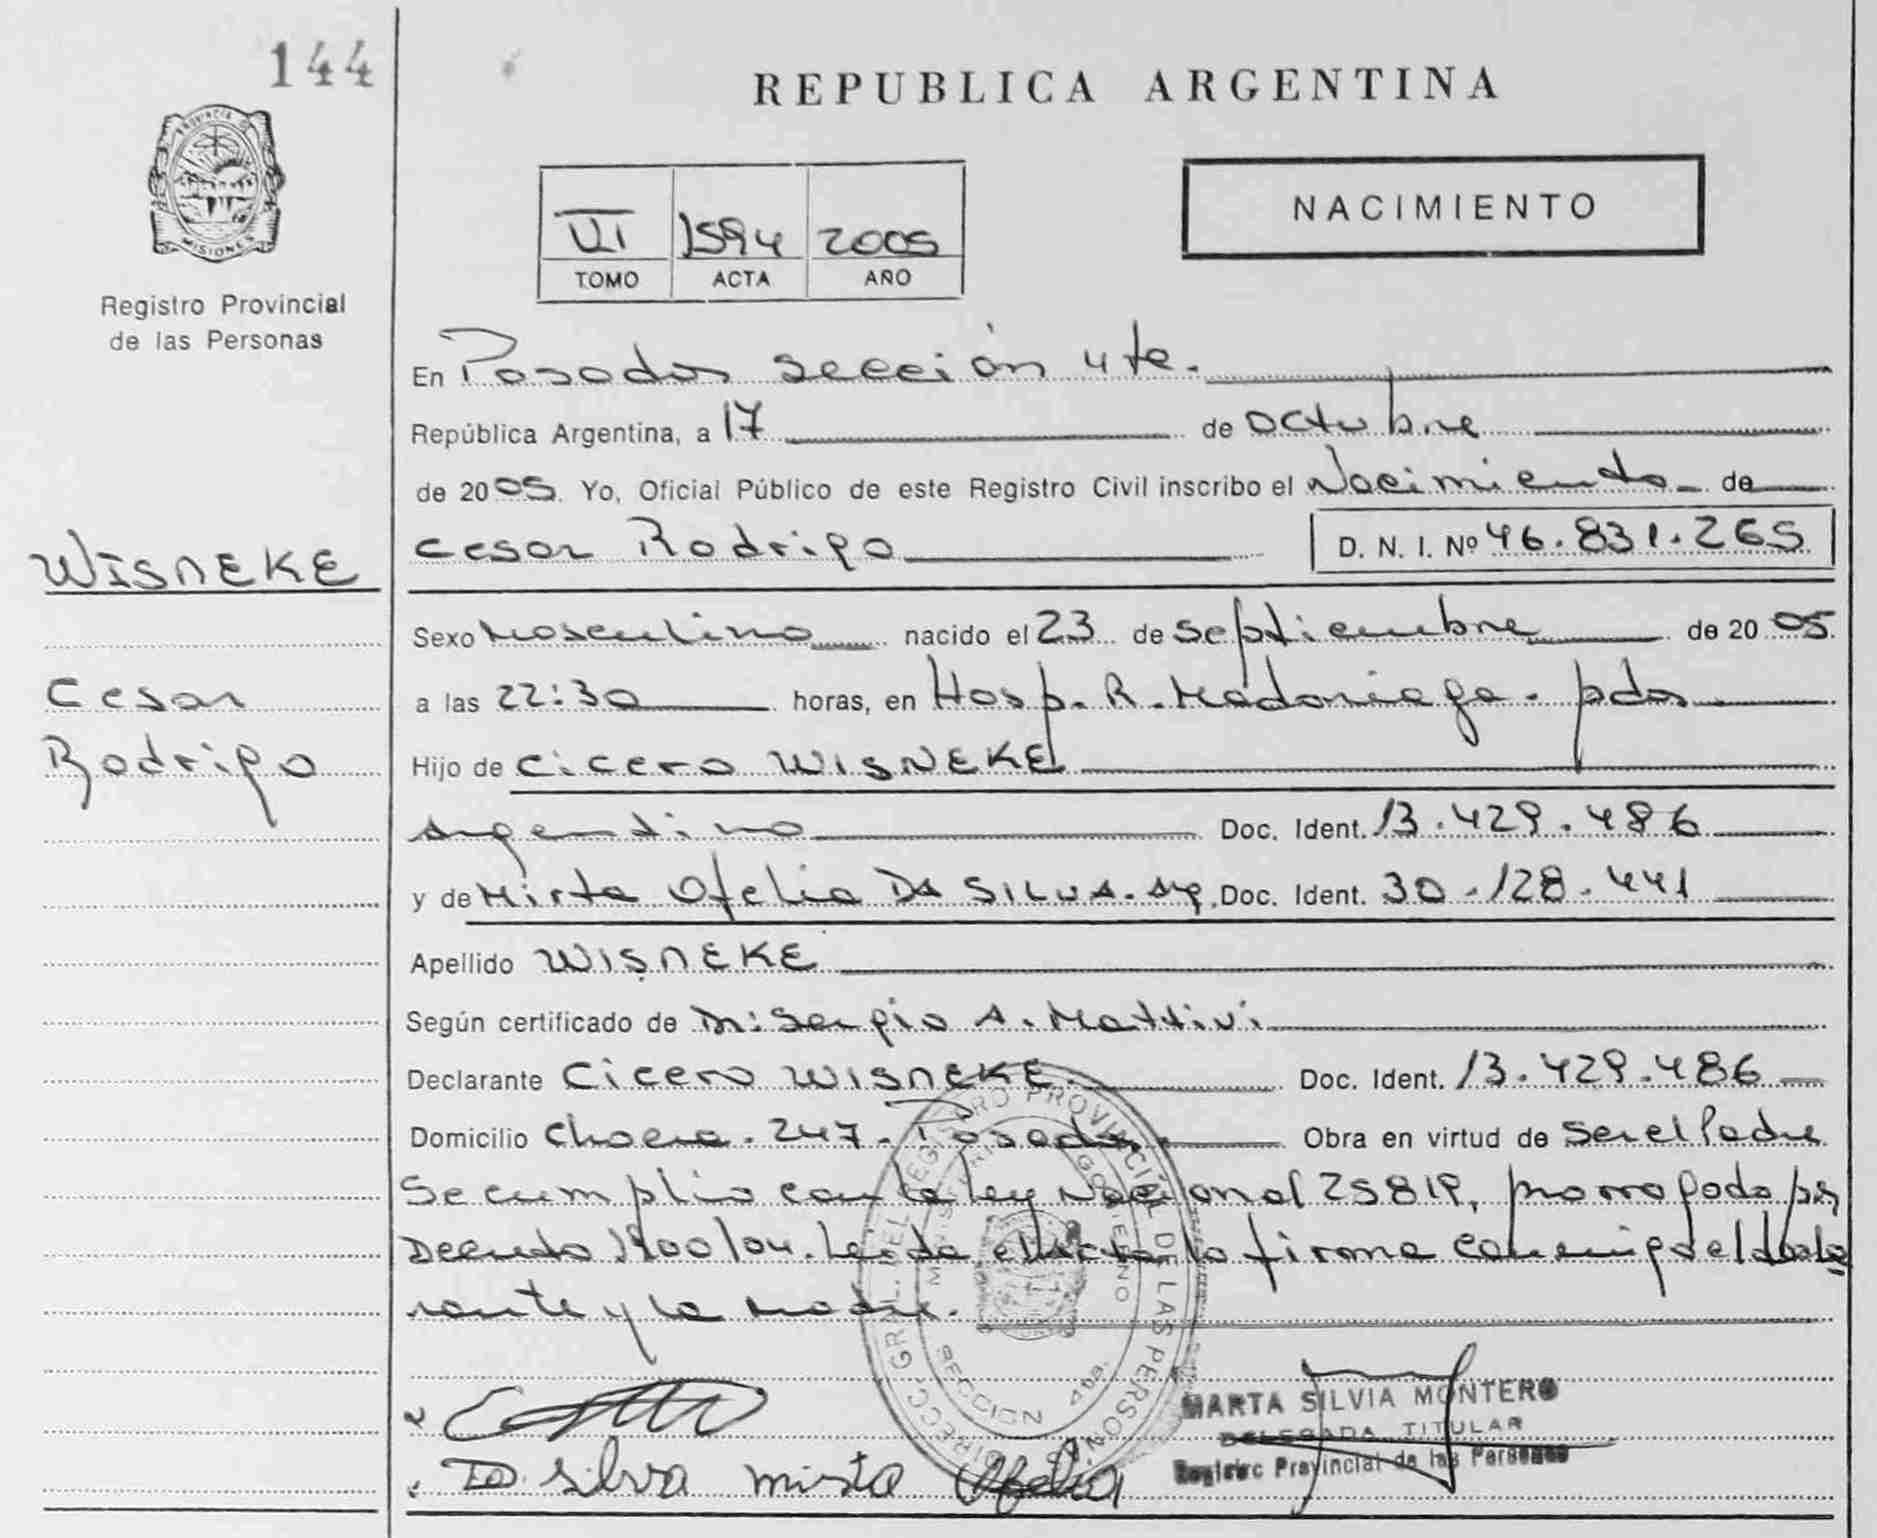 144
REPUBLICA ARGENTINA
PROVINCIA DE
MISIONES
Registro Provincial
de las Personas
VI 1594 2005
TOMO ACTA AÑO
NACIMIENTO
En Posadas sección 4ta.
República Argentina, a 17 de octubre
de 2005. Yo, Oficial Público de este Registro Civil inscribo el Nacimiento de
WISNEKE
Cesar Rodrigo D. N. I. Nº 46.831.265
Sexo Masculino nacido el 23 de septiembre de 2005
Cesar
a las 22:30 horas, en Hosp. R. Madariaga - pdas
Rodrigo
Hijo de Cicero WISNEKE
argentino Doc. Ident. 13.429.486
y de Mirta Ofelia DA SILVA. arg. Doc. Ident. 30.128.441
Apellido WISNEKE
Según certificado de Dr: Sergio A. Mattivi
Declarante Cicero WISNEKE. Doc. Ident. 13.429.486
Domicilio Chacra. 247 - Posadas. Obra en virtud de ser el Padre
Se cumplio con la ley Nacional 25819, prorrogada por
Decreto 1900/04. Leida el acta la firma conmigo el decla
rante y la madre.
DIRECC. GRAL. DEL REGISTRO PROVINCIAL DE LAS PERSONAS
SECCION 4ta.
MARTA SILVIA MONTERO
DELEGADA TITULAR
Registro Provincial de las Personas
Da silva mirta Ofelia